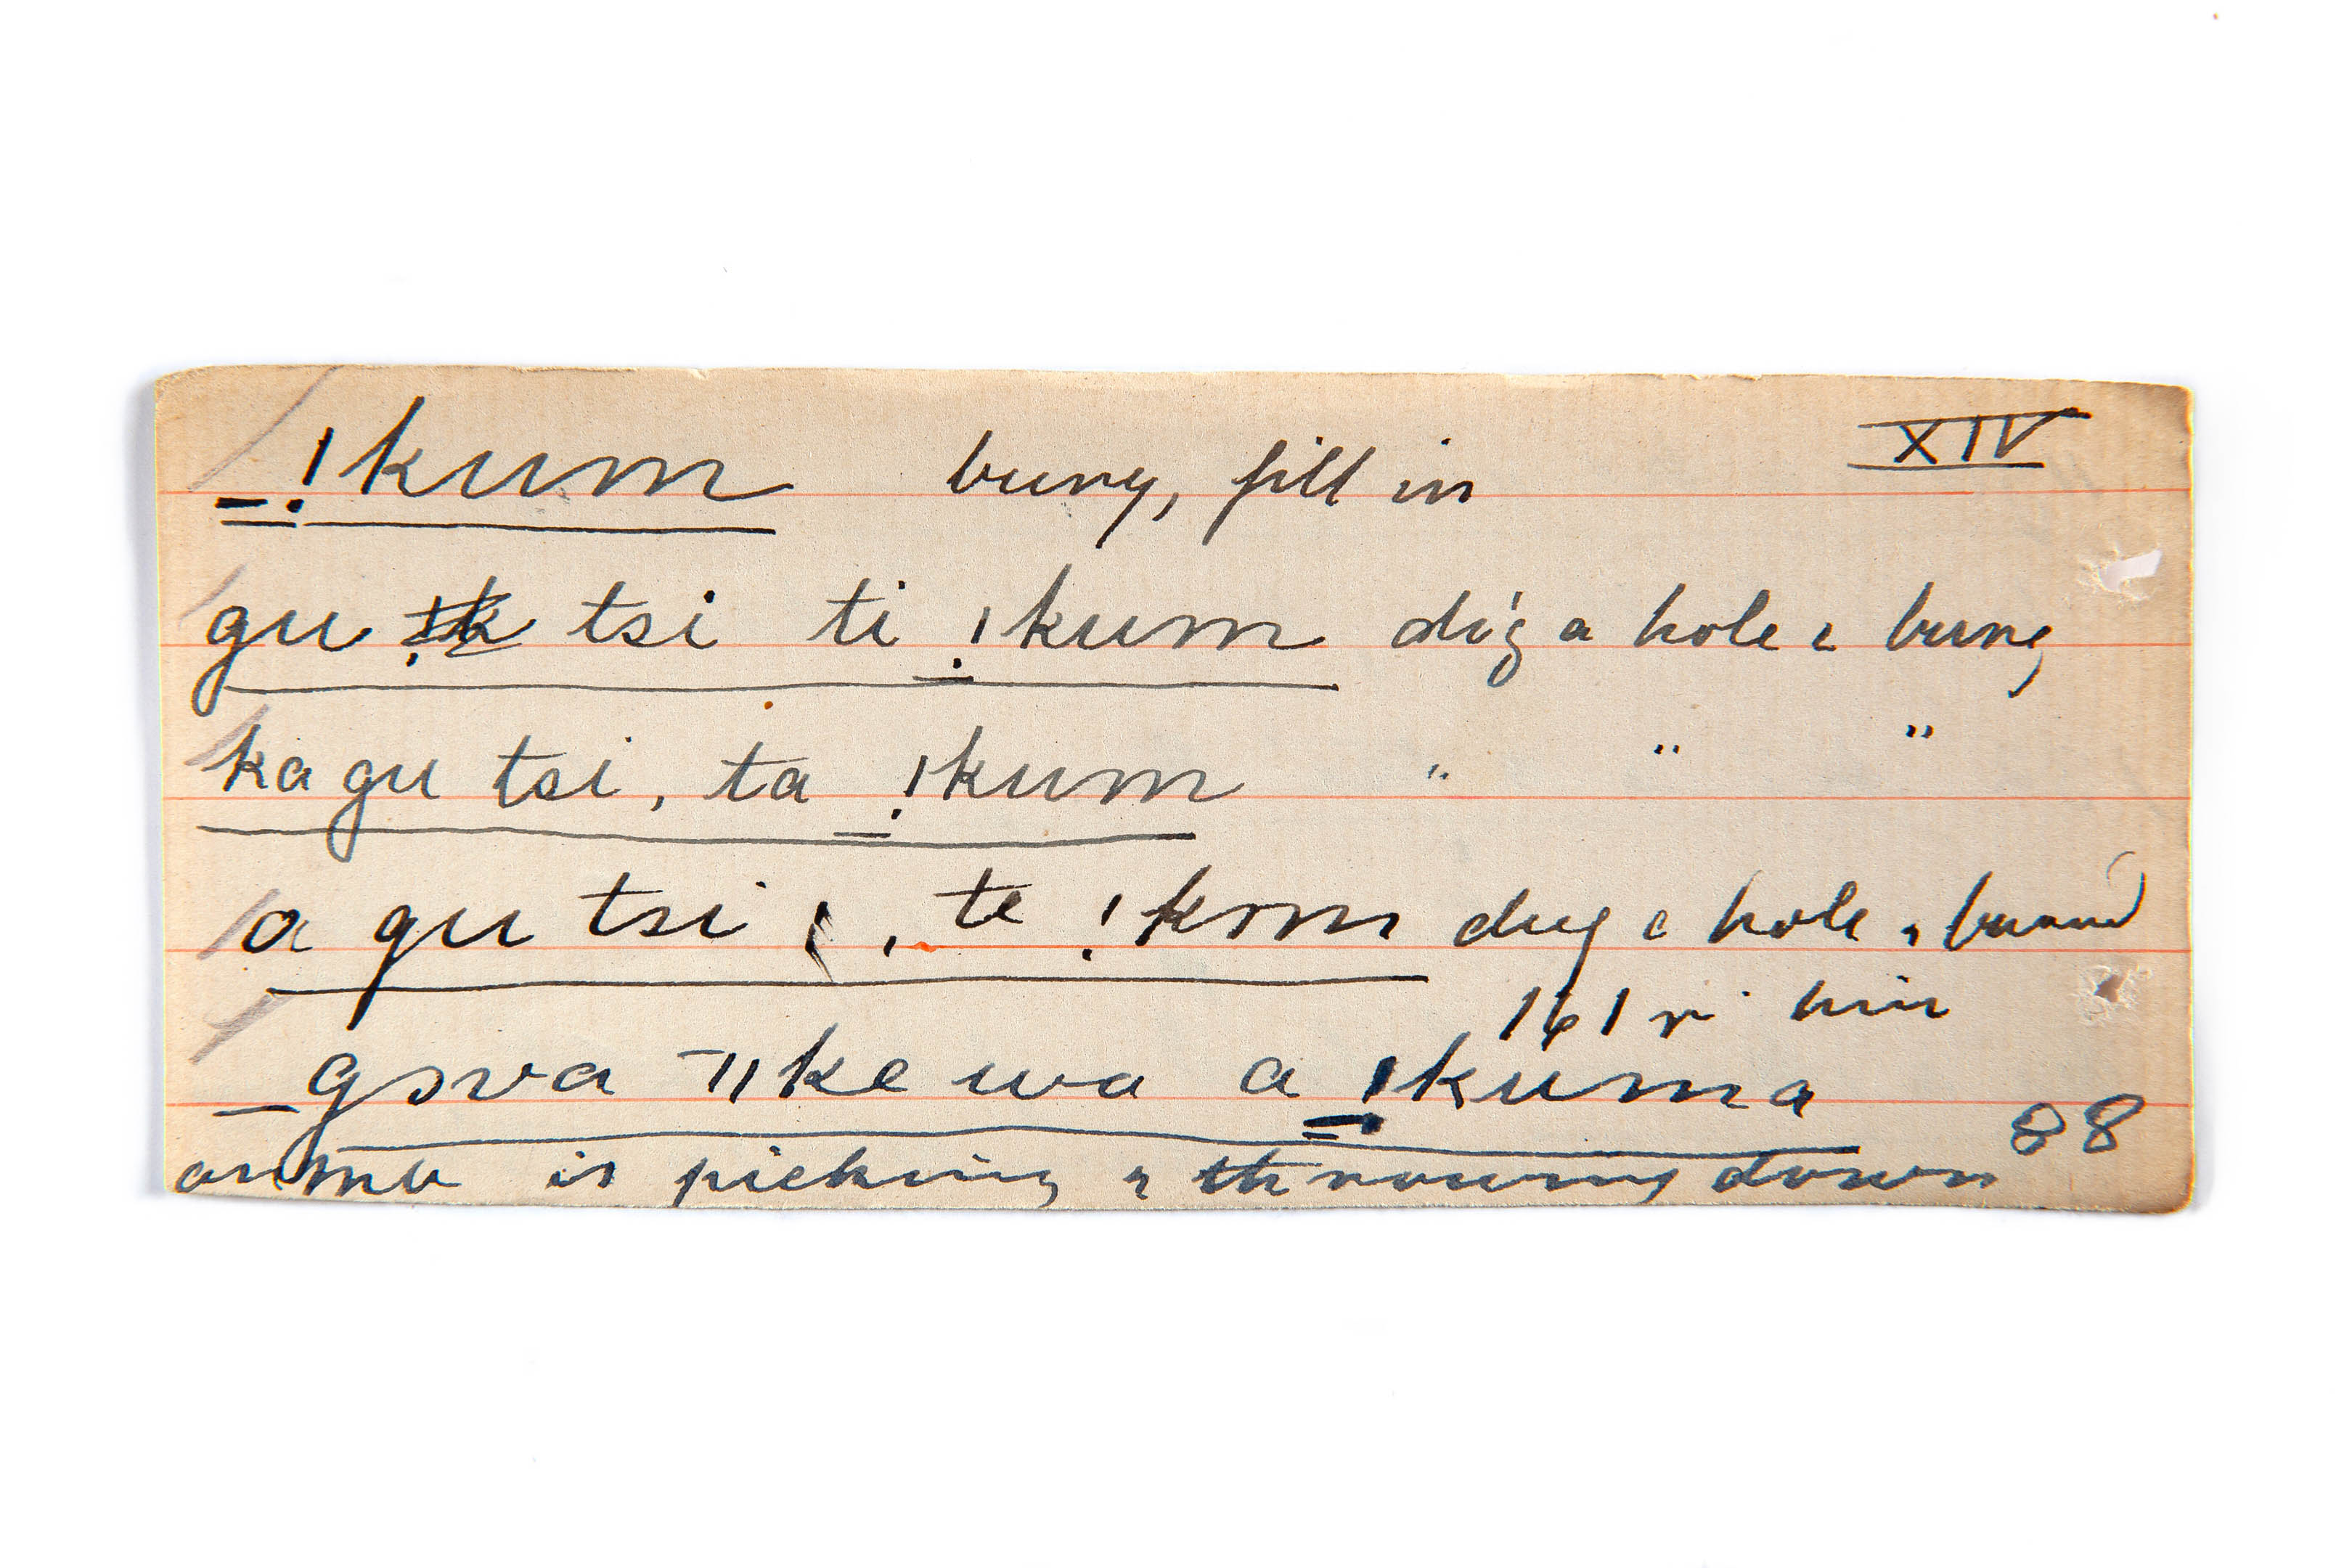 _!kum bury, fill in XIV
gu tsi ti _!kum dig a hole & bury
ka gu tsi, ta _!kum " " "
a gu tsi, te !kom dug a hole & buried
him
_gɔva ¯ǁke wa a _!kuma 88
is picking & throwing down